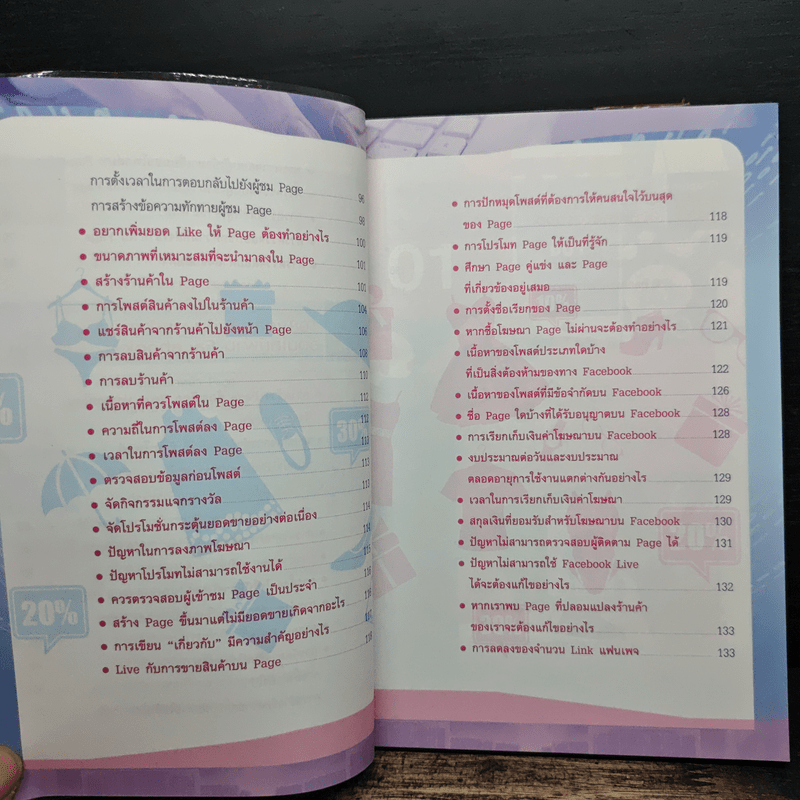 การตั้งเวลาในการตอบกลับไปยังผู้ชม Page 96
การสร้างข้อความทักทายผู้ชม Page 98
• อยากเพิ่มยอด Like ให้ Page ต้องทำอย่างไร 100
• ขนาดภาพที่เหมาะสมที่จะนำมาลงใน Page 101
• สร้างร้านค้าใน Page
• การโพสต์สินค้าลงไปในร้านค้า 104
• แชร์สินค้าจากร้านค้าไปยังหน้า Page 106
• การลบสินค้าจากร้านค้า 108
• การลบร้านค้า 110
• เนื้อหาที่ควรโพสต์ใน Page 112
• ความถี่ในการโพสต์ลง Page 112
• เวลาในการโพสต์ลง Page 113
• ตรวจสอบข้อมูลก่อนโพสต์ 113
• จัดกิจกรรมแจกรางวัล 113
• จัดโปรโมชั่นกระตุ้นยอดขายอย่างต่อเนื่อง 114
• ปัญหาในการลงภาพโฆษณา 114
• ปัญหาโปรโมทไม่สามารถใช้งานได้ 115
• ควรตรวจสอบผู้เข้าชม Page เป็นประจำ 116
• สร้าง Page ขึ้นมาแต่ไม่มียอดขายเกิดจากอะไร 116
• การเขียน “เกี่ยวกับ” มีความสำคัญอย่างไร 117
• Live กับการขายสินค้าบน Page 118
20%
• การปักหมุดโพสต์ที่ต้องการให้คนสนใจไว้บนสุด
ของ Page 118
• การโปรโมท Page ให้เป็นที่รู้จัก 119
• ศึกษา Page คู่แข่ง และ Page
ที่เกี่ยวข้องอยู่เสมอ 119
• การตั้งชื่อเรียกของ Page 120
• หากซื้อโฆษณา Page ไม่ผ่านจะต้องทำอย่างไร 121
• เนื้อหาของโพสต์ประเภทใดบ้าง
ที่เป็นสิ่งต้องห้ามของทาง Facebook 122
• เนื้อหาของโพสต์ที่มีข้อจำกัดบน Facebook 126
• ชื่อ Page ใดบ้างที่ได้รับอนุญาตบน Facebook 128
• การเรียกเก็บเงินค่าโฆษณาบน Facebook 128
• งบประมาณต่อวันและงบประมาณ
ตลอดอายุการใช้งานแตกต่างกันอย่างไร 129
• เวลาในการเรียกเก็บเงินค่าโฆษณา 129
• สกุลเงินที่ยอมรับสำหรับโฆษณาบน Facebook 130
• ปัญหาไม่สามารถตรวจสอบผู้ติดตาม Page ได้ 131
• ปัญหาไม่สามารถใช้ Facebook Live
ได้จะต้องแก้ไขอย่างไร 132
• หากเราพบ Page ที่ปลอมแปลงร้านค้า
ของเราจะต้องแก้ไขอย่างไร 133
• การลดลงของจำนวน Link แฟนเพจ 133